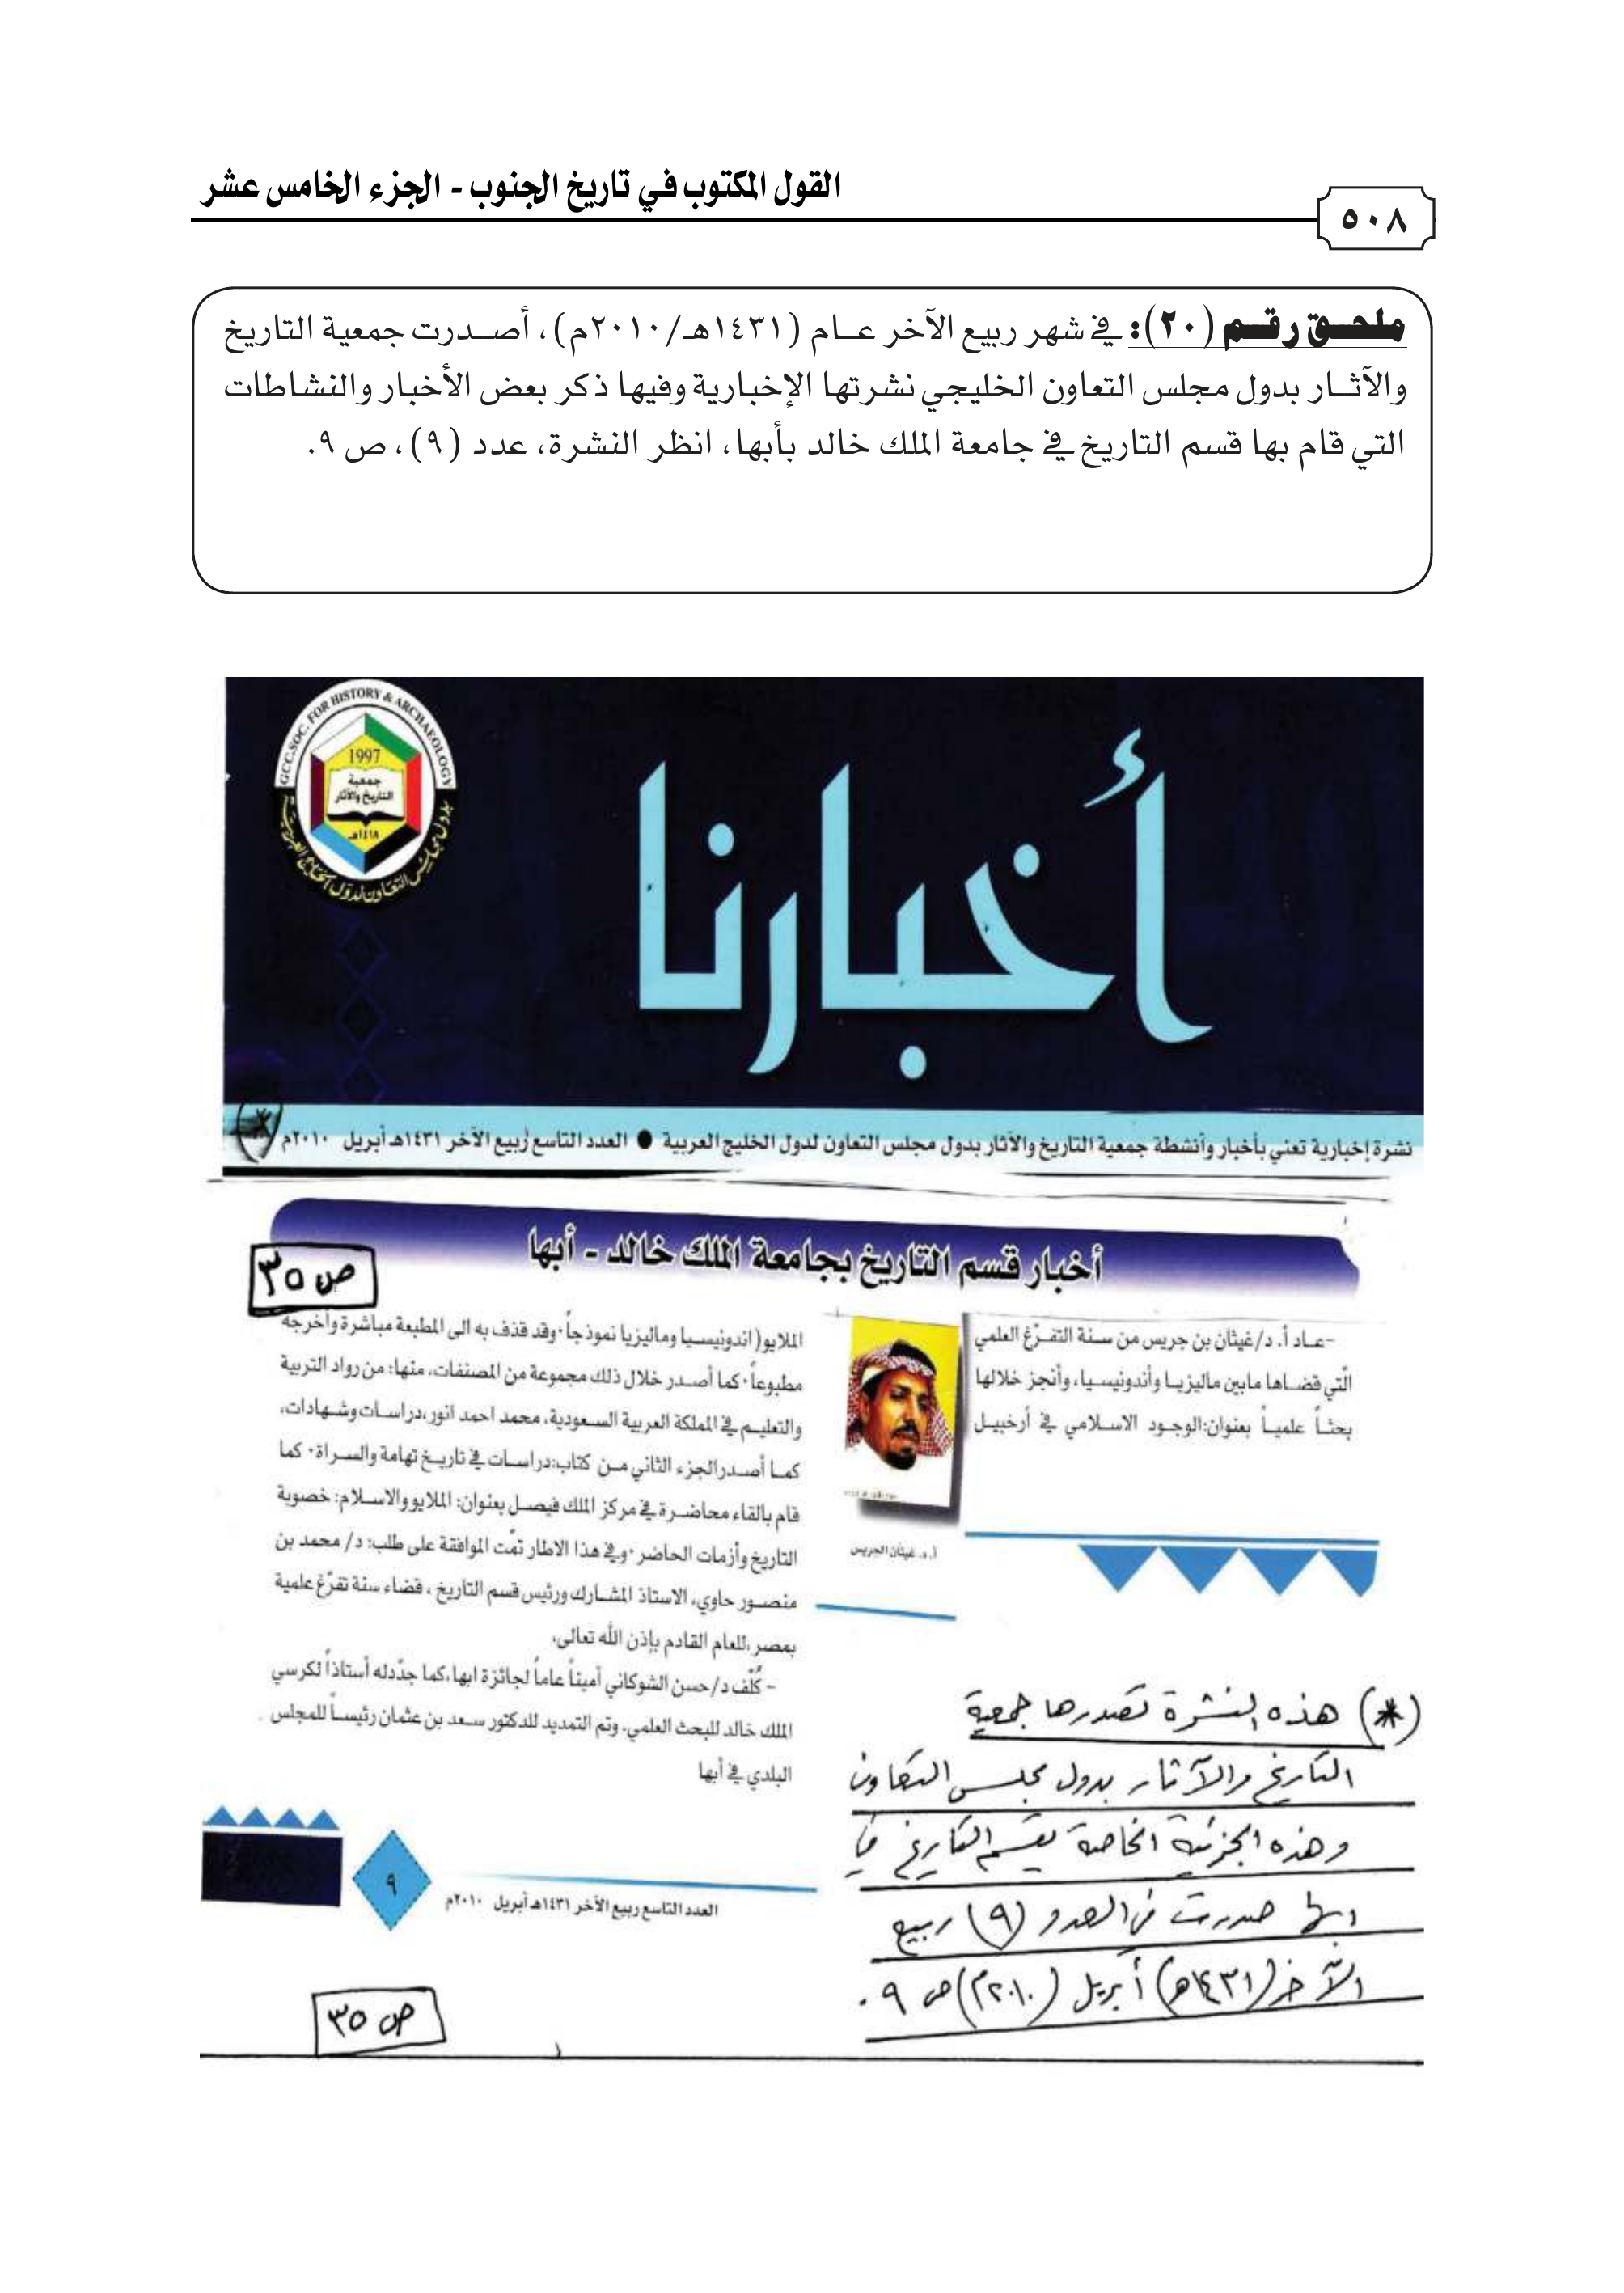 القول المكتوب في تاريخ الجنوب - الجزء الخامس عشر
٥٠٨
ملحق رقم (٢٠): في شهر ربيع الآخر عام (١٤٣١هـ/٢٠١٠م)، أصدرت جمعية التاريخ
والآثار بدول مجلس التعاون الخليجي نشرتها الإخبارية وفيها ذكر بعض الأخبار والنشاطات
التي قام بها قسم التاريخ في جامعة الملك خالد بأبها، انظر النشرة، عدد (٩)، ص ٩.
GCC.SOC. FOR HISTORY & ARCHAEOLOGY
1997
جمعية
التاريخ والآثار
١٤١٨هـ
بدول مجلس التعاون لدول الخليج العربية
أخبارنا
نشرة إخبارية تعني بأخبار وأنشطة جمعية التاريخ والآثار بدول مجلس التعاون لدول الخليج العربية ● العدد التاسع ربيع الآخر ١٤٣١هـ أبريل ٢٠١٠م (*)
أخبار قسم التاريخ بجامعة الملك خالد - أبها
ص ٣٥
-عاد أ. د/غيثان بن جريس من سنة التفرّغ العلمي
الّتي قضاها مابين ماليزيا وأندونيسيا، وأنجز خلالها
بحثاً علمياً بعنوان:الوجود الاسلامي في أرخبيل
أ.د. غيثان الجريس
الملايو(اندونيسيا وماليزيا نموذجاً٠وقد قذف به الى المطبعة مباشرة وأخرجه
مطبوعاً٠كما أصدر خلال ذلك مجموعة من المصنفات، منها: من رواد التربية
والتعليم في المملكة العربية السعودية، محمد احمد انور،دراسات وشهادات،
كما أصدرالجزء الثاني من كتاب:دراسات في تاريخ تهامة والسراة٠ كما
قام بالقاء محاضرة في مركز الملك فيصل بعنوان: الملايو والاسلام: خصوبة
التاريخ وأزمات الحاضر٠وفي هذا الاطار تمّت الموافقة على طلب: د/ محمد بن
منصور حاوي، الاستاذ المشارك ورئيس قسم التاريخ ، قضاء سنة تفرّغ علمية
بمصر،للعام القادم بإذن الله تعالى،
- كُلّف د/حسن الشوكاني أميناً عاماً لجائزة ابها،كما جدّدله أستاذاً لكرسي
الملك خالد للبحث العلمي. وتم التمديد للدكتور سعد بن عثمان رئيساً للمجلس
البلدي في أبها
(*) هذه النشرة تصدرها جمعية
التاريخ والآثار بدول مجلس التعاون
وهذه الجزئية الخاصة بقسم التاريخ في
ابها صدرت في العدد (٩) ربيع
الآخر (١٤٣١هـ) أبريل (٢٠١٠م) ص ٩.
٩
العدد التاسع ربيع الآخر ١٤٣١هـ أبريل ٢٠١٠م
ص ٣٥